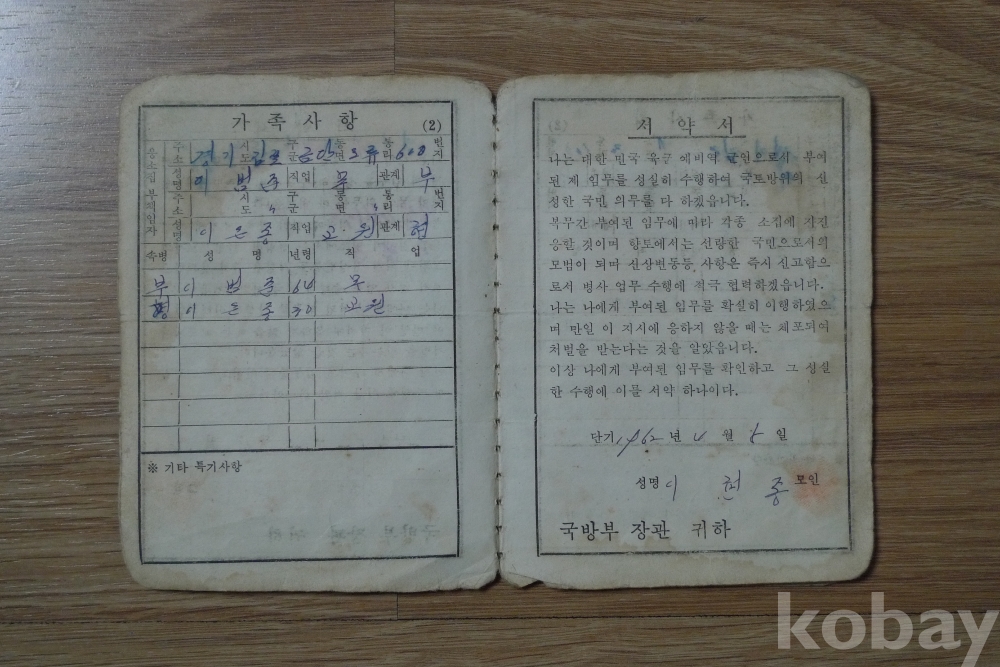 가족사항 (2)
주소 경기 시도 김포 구군 동면 오류 통리 600 번지
성명 이범준 직업 무 관계 부
부재입자 주소 시도 〃 구군 동면 〃 통리 번지
성명 이은종 직업 교원 관계 형
속병 성명 년령 직업
부 이범준 64 무
형 이은종 30 교원
※ 기타 특기사항
서약서
나는 대한 민국 육군 예비역 군원으로서 부여
된 제 임무를 성실히 수행하여 국토방위의 신
성한 국민 의무를 다 하겠읍니다.
복무간 부여된 임무에 따라 각종 소집에 자진
응할 것이며 향토에서는 선량한 국민으로서의
모범이 되며 신상변동등 사항은 즉시 신고함으
로서 병사 업무 수행에 적극 협력하겠읍니다.
나는 나에게 부여된 임무를 확실히 이행하였으
며 만일 이 지시에 응하지 않을 때는 체포되여
처벌을 받는다는 것을 알았읍니다.
이상 나에게 부여된 임무를 확인하고 그 성실
한 수행에 이를 서약 하나이다.
단기 1962년 4월 5일
성명 이헌종 모인
국방부 장관 귀하
kobay